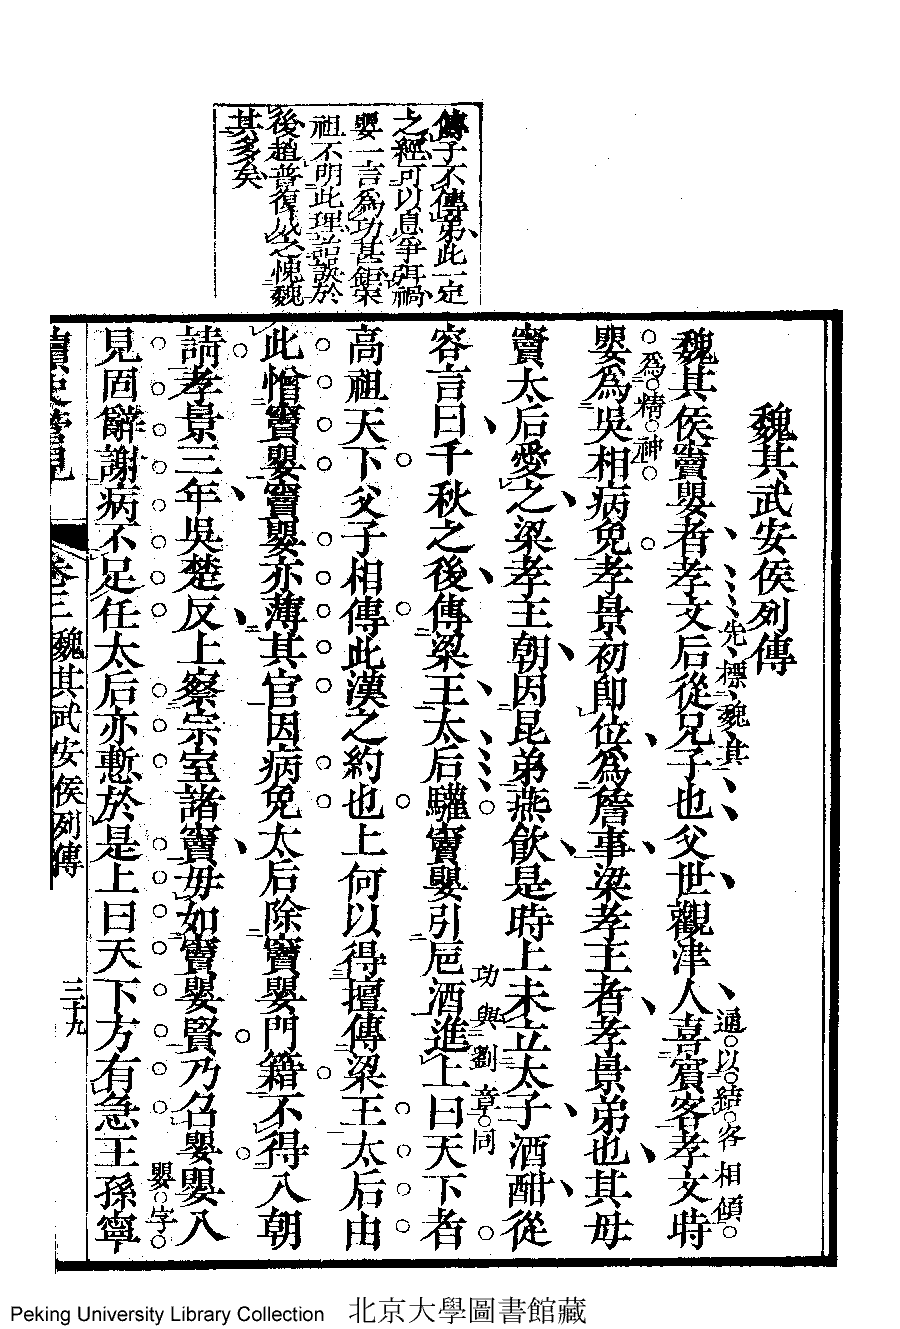 傳子不傳弟此一定
之經可以息爭弭禍
嬰一言爲功甚鉅宋
祖不明此理詒謀於
後趙普復成之愧魏
其多矣
魏其武安侯列傳
先標魏其
通以結客相傾
魏其侯竇嬰者孝文后從兄子也父世觀津人喜賓客孝文時
爲精神
嬰爲吳相病免孝景初卽位爲詹事梁孝王者孝景弟也其母
竇太后愛之梁孝王朝因昆弟燕飮是時上未立太子酒酣從
功與劉章同
容言曰千秋之後傳梁王太后驩竇嬰引巵酒進上曰天下者
高祖天下父子相傳此漢之約也上何以得擅傳梁王太后由
此憎竇嬰竇嬰亦薄其官因病免太后除竇嬰門籍不得入朝
請孝景三年吳楚反上察宗室諸竇毋如竇嬰賢乃召嬰嬰入
嬰字
見固辭謝病不足任太后亦慙於是上曰天下方有急王孫寧
讀史管見
卷三 魏其武安侯列傳
三十九
Peking University Library Collection 北京大學圖書館藏